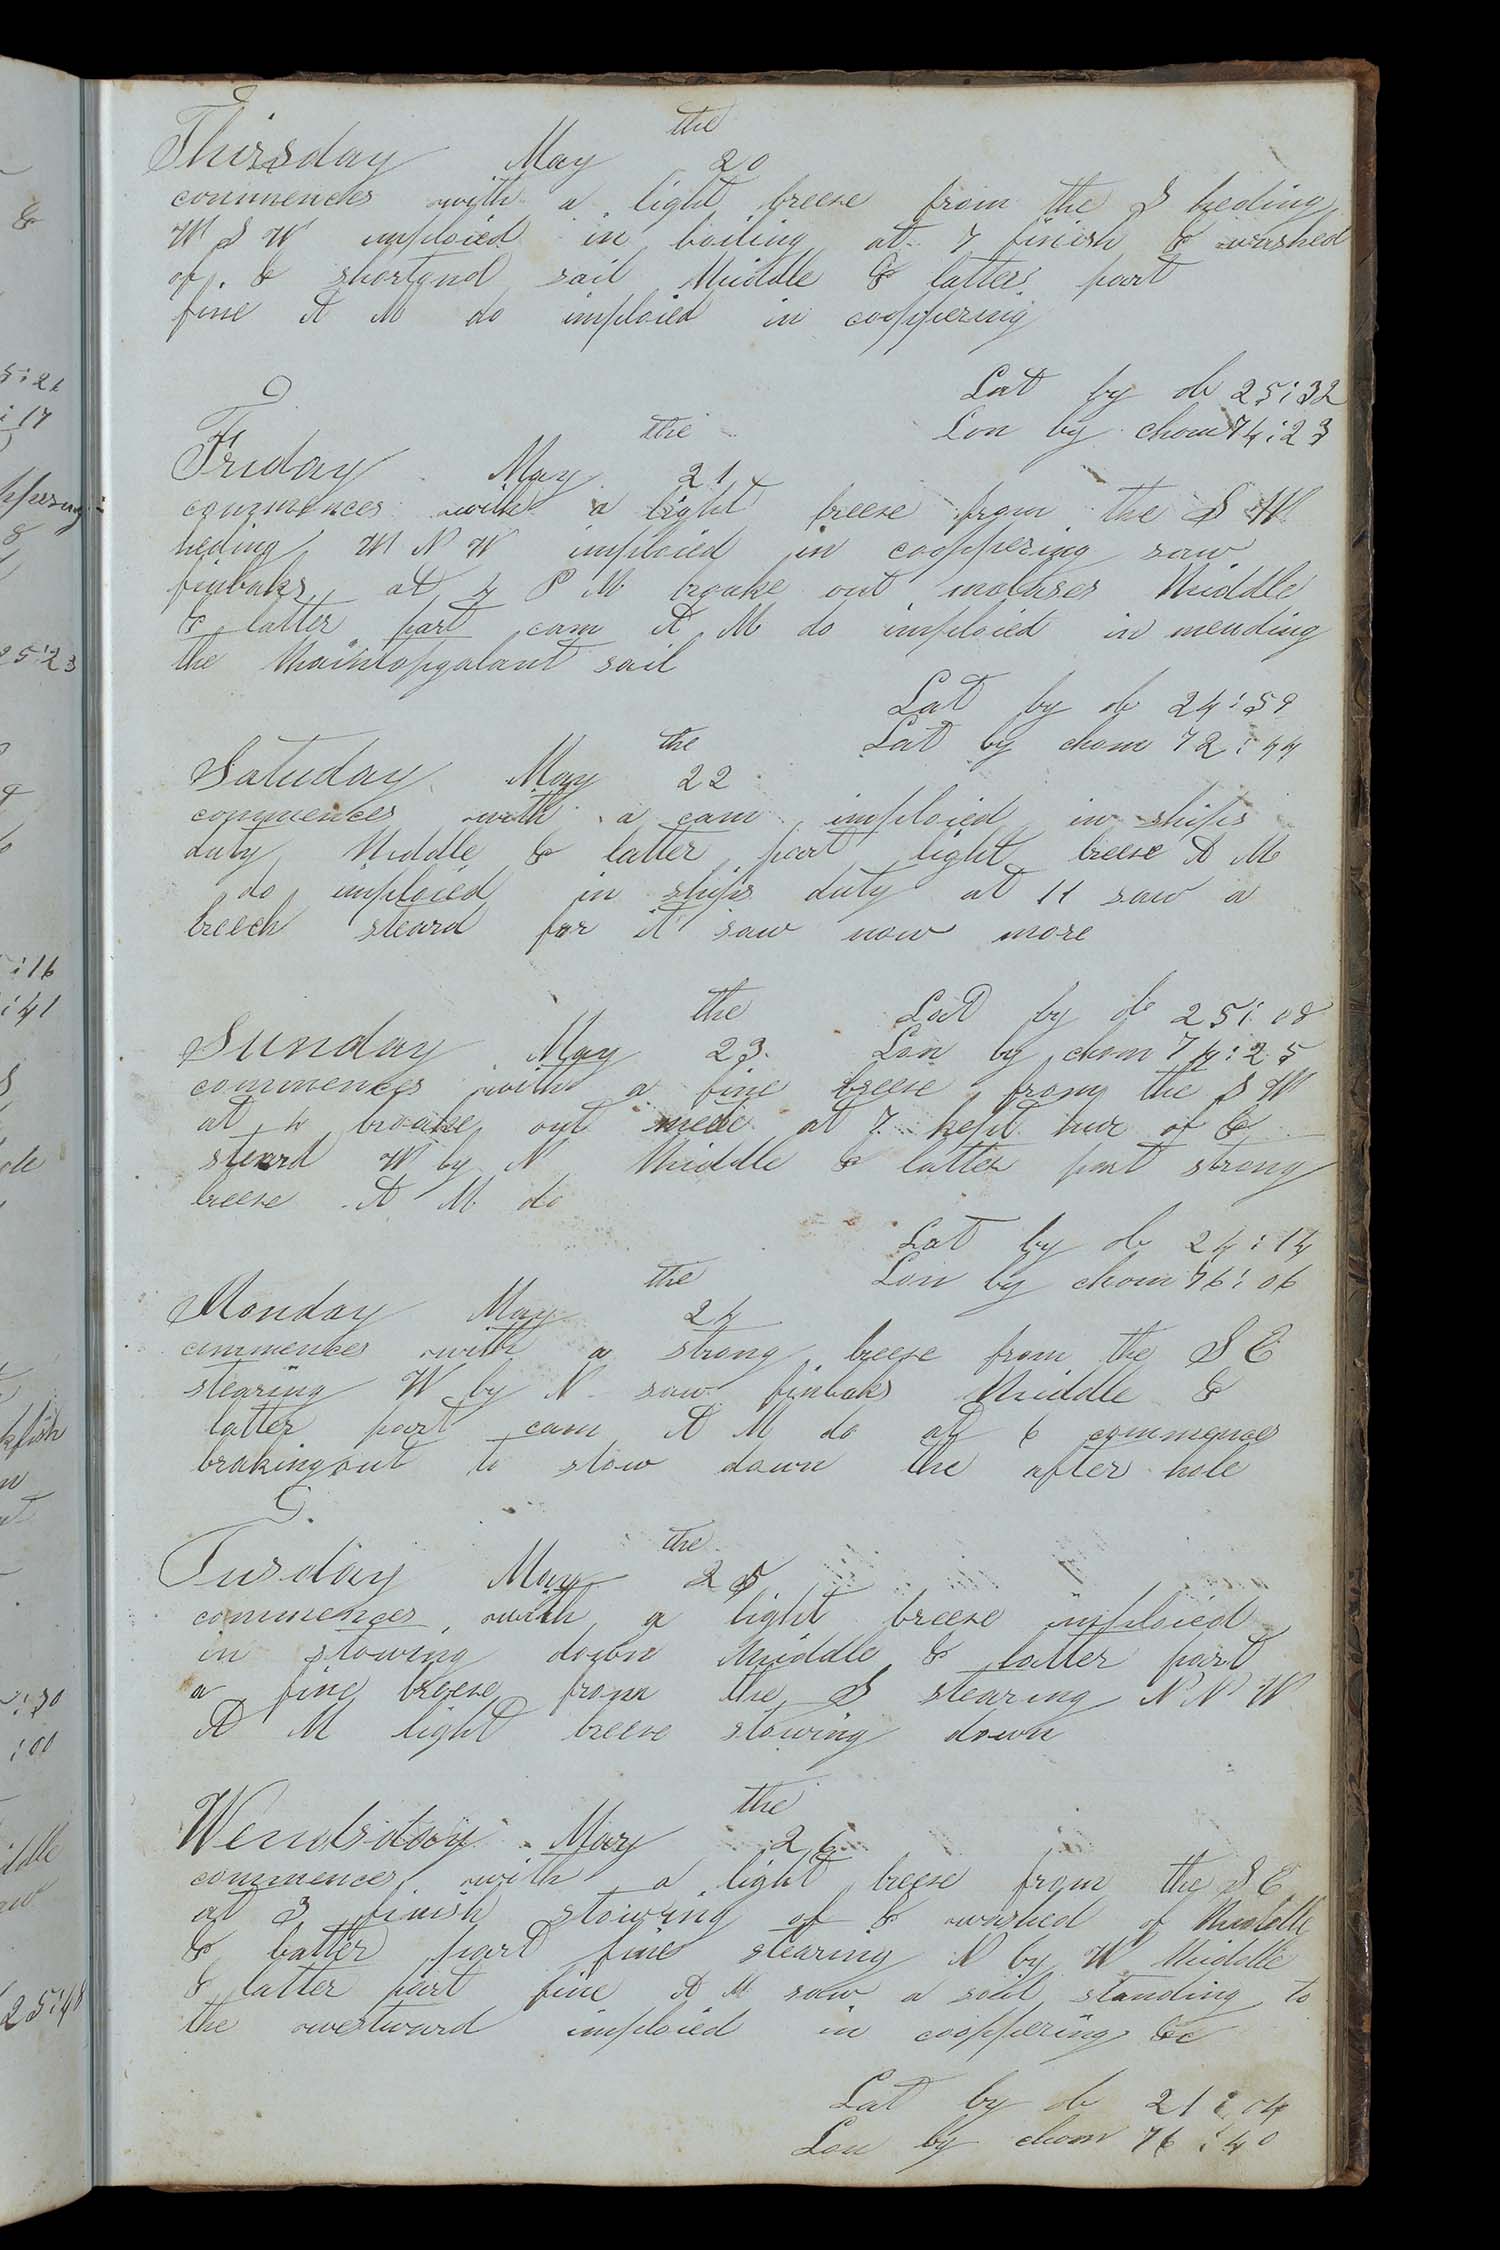 Thirsday May the 20
commences with a light breese from the S heding
W S W imploied in boiling at 7 finish & washed
of & shortynd sail Middle & latter part
fine A M do imploied in coppering
Lat by ob 25:32
Lon by chom 74:23
Friday May the 21
commences with a light breese from the S W
heding W N W imploied in coopering saw
finbaks at 4 P M broake out molases Middle
& latter part cam A M do imploied in mending
the Maintopgalant sail
Lat by ob 24:59
Lat by chom 72:44
Satuday May the 22
commences with a cam imploied in ships
duty Middle & latter part light breese A M
do imploied in ships duty at 11 saw a
breech steard for it saw now more
Lat by ob 25:08
Sunday May the 23
Lon by chom 74:25
commences with a fine breese from the S W
at 4 broake out mede at 7 kept hur of &
steard W by N Middle & latter part strong
breese A M do
Lat by ob 24:14
Lon by chom 76:06
Monday May the 24
commences with a strong breese from the S E
stearing W by N saw finbaks Middle &
latter part cam A M do at 6 commences
braking out to stow down the after hole
Tusday May the 25
commences with a light breese imploied
in stowing down Middle & latter part
a fine breese from the S stearing N N W
A M light breese stowing down
Wendsday May the 26
commences with a light breese from the S E
at 3 finish stowing of & washed of Middle
& latter part fine stearing N by W Middle
& latter part fine A M saw a sail standing to
the westward imploied in coopering &c
Lat by ob 21:04
Lon by chom 76:40